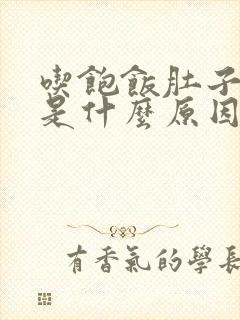 喫飽飯肚子
是什麼原因
有香氣的學長